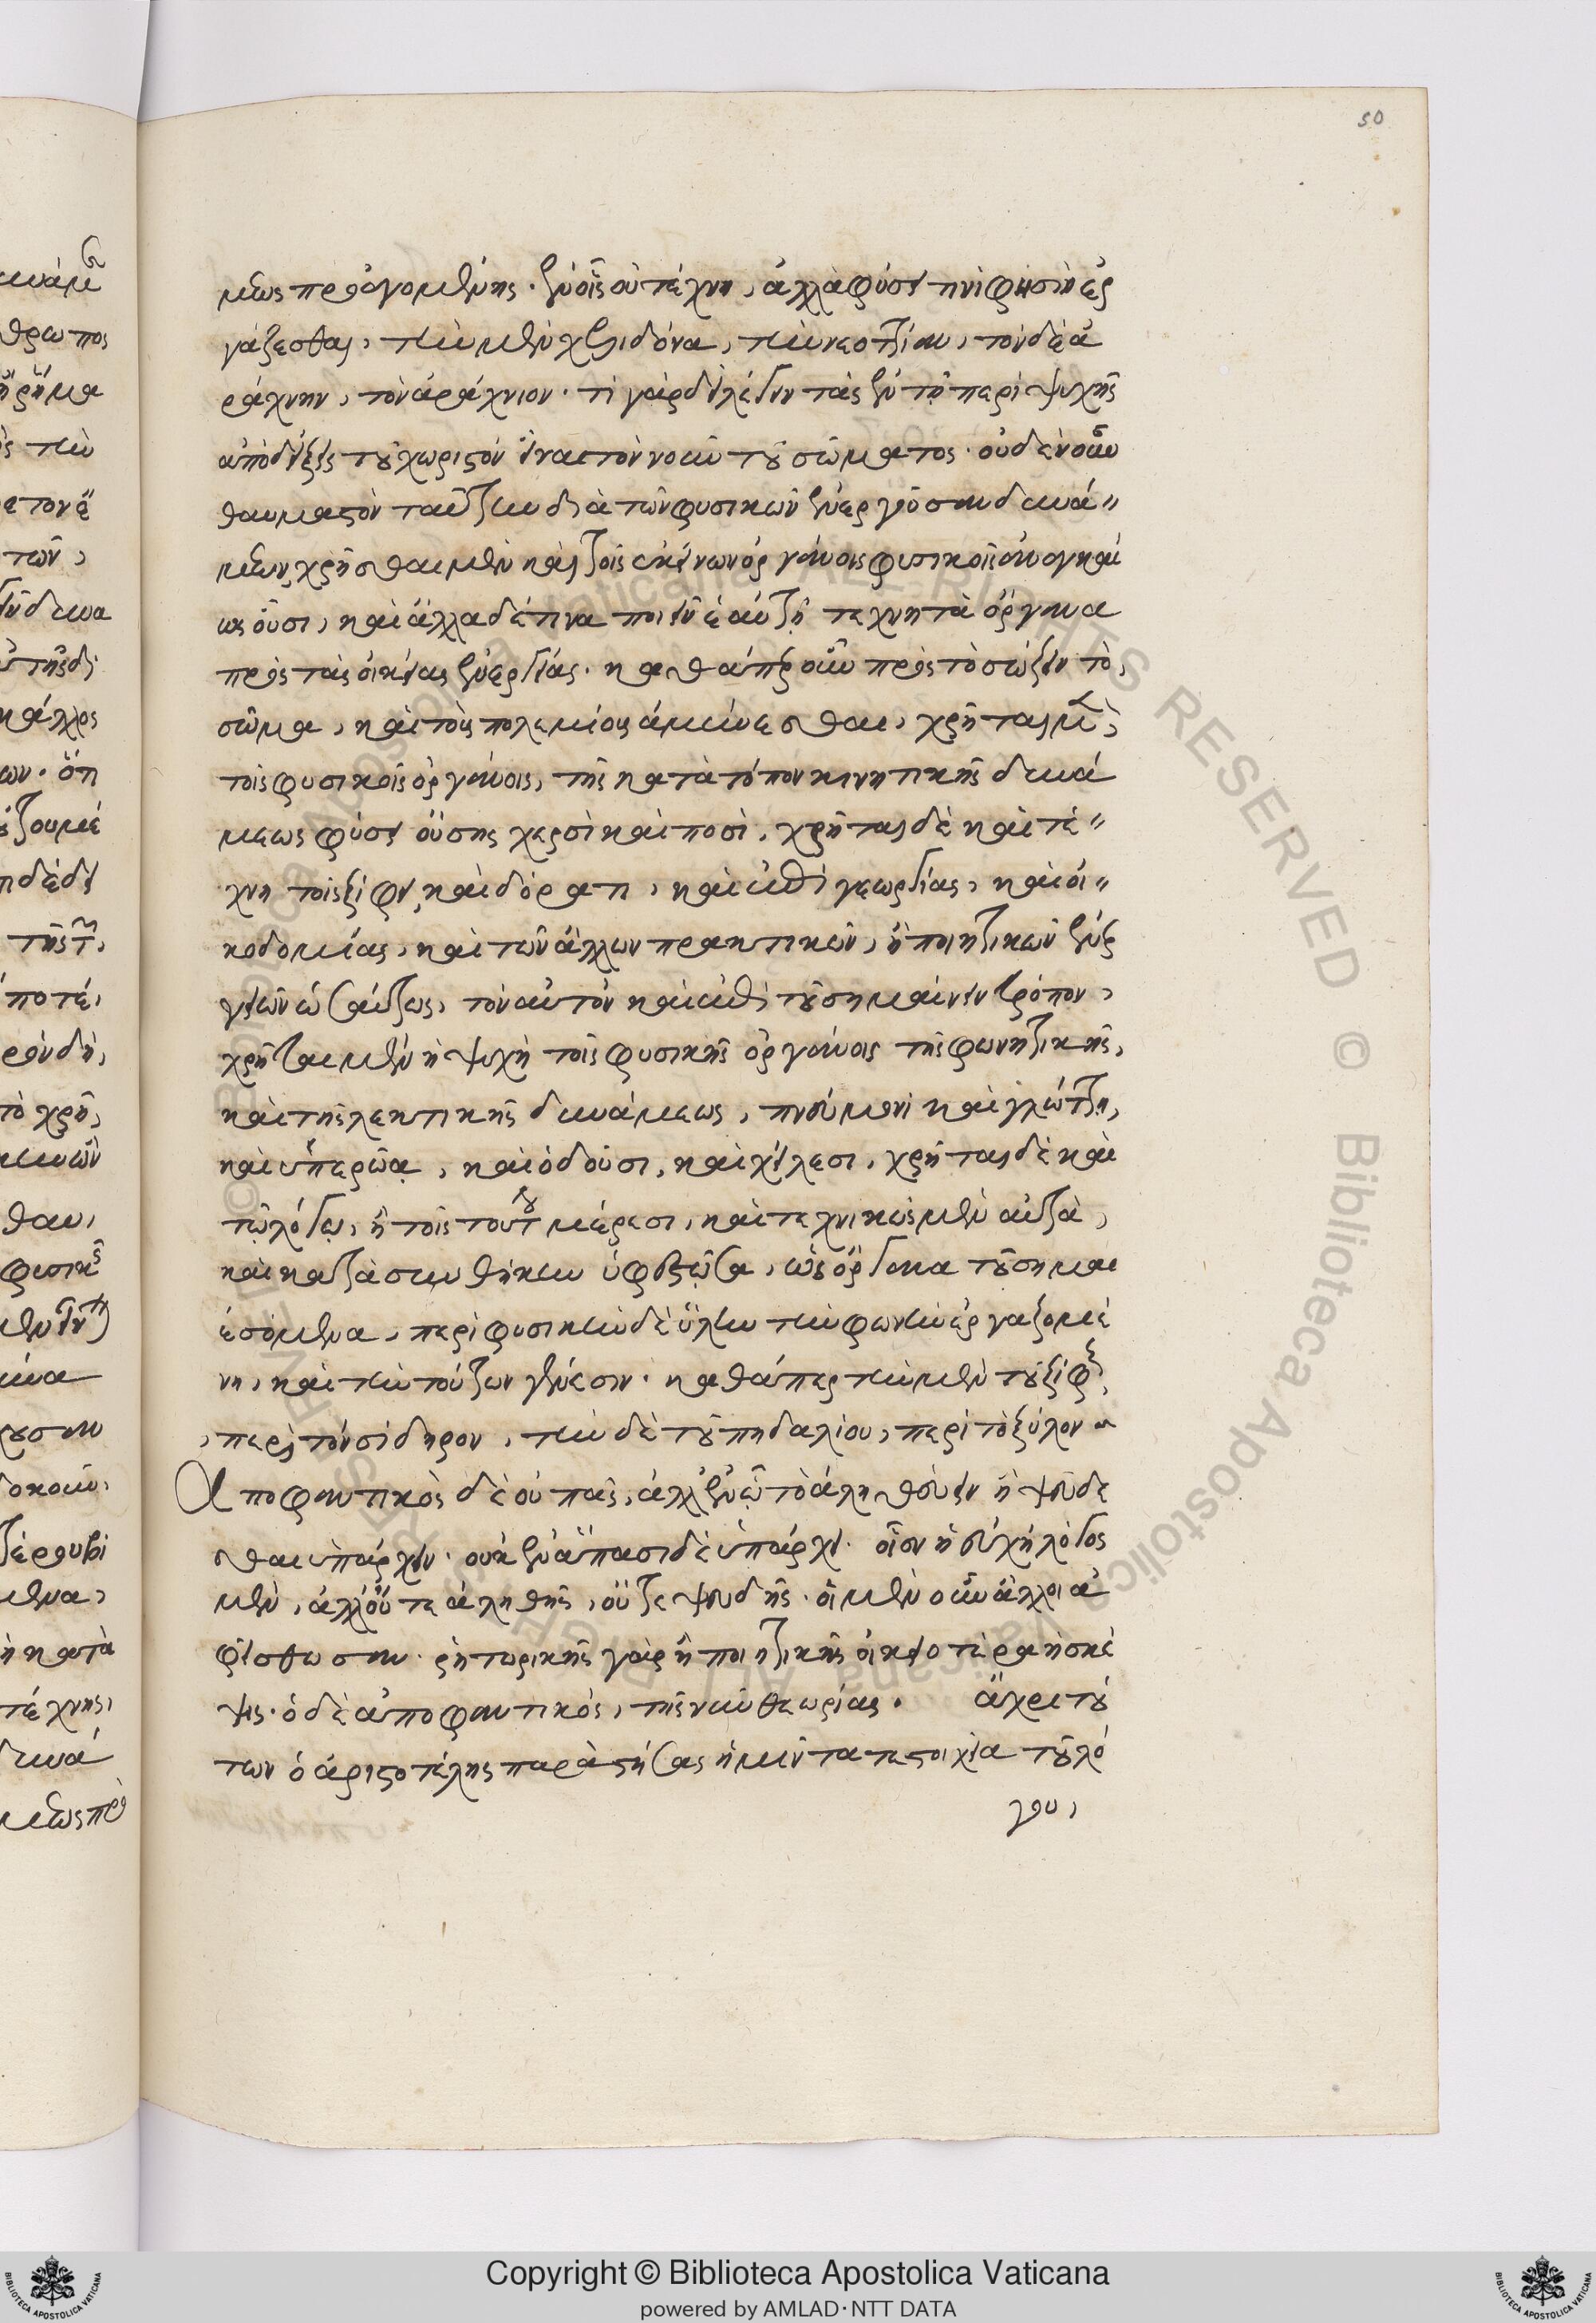 50
μεως προαγομένης. ἐν οἷς οὐ τέχνη, ἀλλὰ φύσει τινί φησιν ἐρ
γάζεσθαι, τὴν μὲν χελιδόνα, τὴν νεοττίαν, τὸν δὲ ἀ
ράχνην, τὸν ἀράχνιον. τί γὰρ δεῖ λέγειν τὰς ἐν τῷ περὶ ψυχῆς
ἀποδείξεις τοῦ χωριστὸν εἶναι τὸν νοῦν τοῦ σώματος. οὐδὲν οὖν
θαυμαστὸν ταύτην διὰ τῶν φυσικῶν ἐνεργοῦσαν δυνά
μεων, χρῆσθαι μὲν καὶ τοῖς ἐκείνων ὀργάνοις φυσικοῖς ἀναγκαί
ως οὖσι, καὶ ἄλλα δέ τινα ποιεῖν ἑαυτῇ τεχνητὰ ὄργανα
πρὸς τὰς οἰκείας ἐνεργείας. καθάπερ οὖν πρὸς τὸ σώζειν τὸ
σῶμα, καὶ τοὺς πολεμίους ἀμύνεσθαι, χρῆται μὲν
τοῖς φυσικοῖς ὀργάνοις, τῆς κατὰ τόπον κινητικῆς δυνά
μεως φύσει οὔσης χερσὶ καὶ ποσὶ, χρῆται δὲ καὶ τέ
χνῃ τοῖς ξίφει, καὶ δόρατι, καὶ ἐπὶ γεωργίας, καὶ οἰ
κοδομίας, καὶ τῶν ἄλλων πρακτικῶν, ἢ ποιητικῶν ἐνερ
γειῶν ὡσαύτως, τὸν αὐτὸν καὶ ἐπὶ τοῦ σημαίνειν τρόπον,
χρῆται μὲν ἡ ψυχὴ τοῖς φυσικῆς ὀργάνοις τῆς φωνητικῆς,
καὶ τῆς λεκτικῆς δυνάμεως, πνεύμονι καὶ γλώττῃ,
καὶ ὑπερώᾳ, καὶ ὀδοῦσι, καὶ χείλεσι, χρῆται δὲ καὶ
τῷ λόγῳ, ἢ τοῖς τούτου μέρεσι, καὶ τεχνικῶς μὲν αὐτὰ,
καὶ κατὰ συνθήκην ὑφιστῶσα, ὡς ὄργανα τοῦ σημαί
ἐσόμενα, περὶ φυσικὴν δὲ ὕλην τὴν φωνὴν ἐργαζομέ
νη, καὶ τὴν τούτων γένεσιν. καθάπερ τὴν μὲν τοῦ ξίφους
περὶ τὸν σίδηρον, τὴν δὲ τοῦ πηδαλίου, περὶ τὸ ξύλον
Ἀποφαντικὸς δὲ οὐ πᾶς, ἀλλ' ἐν ᾧ τὸ ἀληθεύειν ἢ ψεύδε
σθαι ὑπάρχειν. οὐκ ἐν ἅπασι δὲ ὑπάρχει. οἷον ἡ εὐχὴ λόγος
μὲν, ἀλλ' οὔτε ἀληθὴς, οὔτε ψευδής. οἱ μὲν οὖν ἄλλοι ἀ
φείσθωσαν. ῥητορικῆς γὰρ ἢ ποιητικῆς οἰκειοτέρα ἡ σκέ
ψις. ὁ δὲ ἀποφαντικὸς, τῆς νῦν θεωρίας. ἄχρι τού
των ὁ ἀριστοτέλης παραστήσας ἡμῖν τά τε στοιχεῖα τοῦ λό
γου,
Copyright © Biblioteca Apostolica Vaticana
powered by AMLAD·NTT DATA